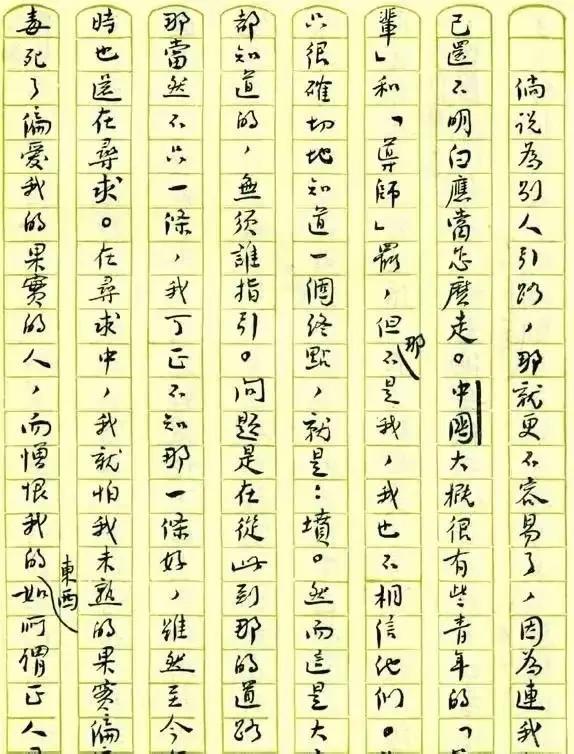 倘説為別人引路，那就更不容易了，因為連我
己還不明白應當怎麼走。中國大概很有些青年的「
輩」和「導師」罷，但那不是我，我也不相信他們。
只很確切地知道一個終點，就是：墳。然而這是大
都知道的，無須誰指引。問題是在從此到那的道路
那當然不只一條，我可正不知那一條好，雖然至今
時也還在尋求。在尋求中，我就怕我未熟的果實偏
毒死了偏愛我的果實的人，而憎恨我的東西如所謂正人